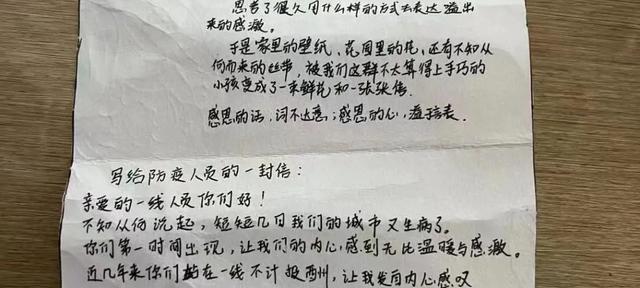 思考了很久用什么样的方式去表达溢出
来的感激。
于是家里的壁纸、花园里的花,还有不知从
何而来的丝带,被我们这群不太算得上手巧的
小孩变成了一束鲜花和一张张信.
感恩的话,词不达意;感恩的心,溢于言表.
写给防疫人员的一封信:
亲爱的一线人员你们好!
不知从何说起,短短几日我们的城市又生病了。
你们第一时间出现,让我们的内心感到无比温暖与感激。
近几年来你们站在一线不计报酬,让我发自内心感叹